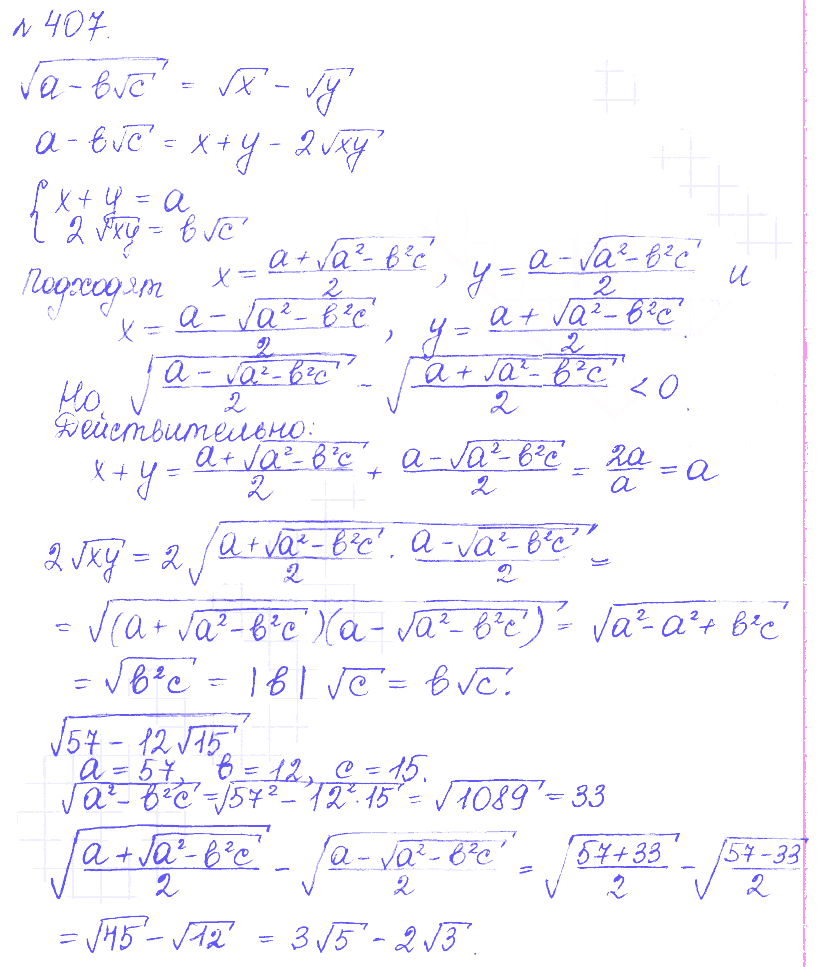 № 407.
√(a - b√c) = √x - √y
a - b√c = x + y - 2√(xy)
{ x + y = a
2√(xy) = b√c
Подходят x = (a + √(a² - b²c))/2, y = (a - √(a² - b²c))/2 и
x = (a - √(a² - b²c))/2, y = (a + √(a² - b²c))/2.
Но √((a - √(a² - b²c))/2) - √((a + √(a² - b²c))/2) < 0.
Действительно:
x + y = (a + √(a² - b²c))/2 + (a - √(a² - b²c))/2 = 2a/a = a
2√(xy) = 2√((a + √(a² - b²c))/2 · (a - √(a² - b²c))/2) =
= √((a + √(a² - b²c))(a - √(a² - b²c))) = √(a² - a² + b²c)
= √(b²c) = |b|√c = b√c.
√(57 - 12√15)
a = 57, b = 12, c = 15.
√(a² - b²c) = √(57² - 12²·15) = √1089 = 33
√((a + √(a² - b²c))/2) - √((a - √(a² - b²c))/2) = √((57 + 33)/2) - √((57 - 33)/2)
= √45 - √12 = 3√5 - 2√3.